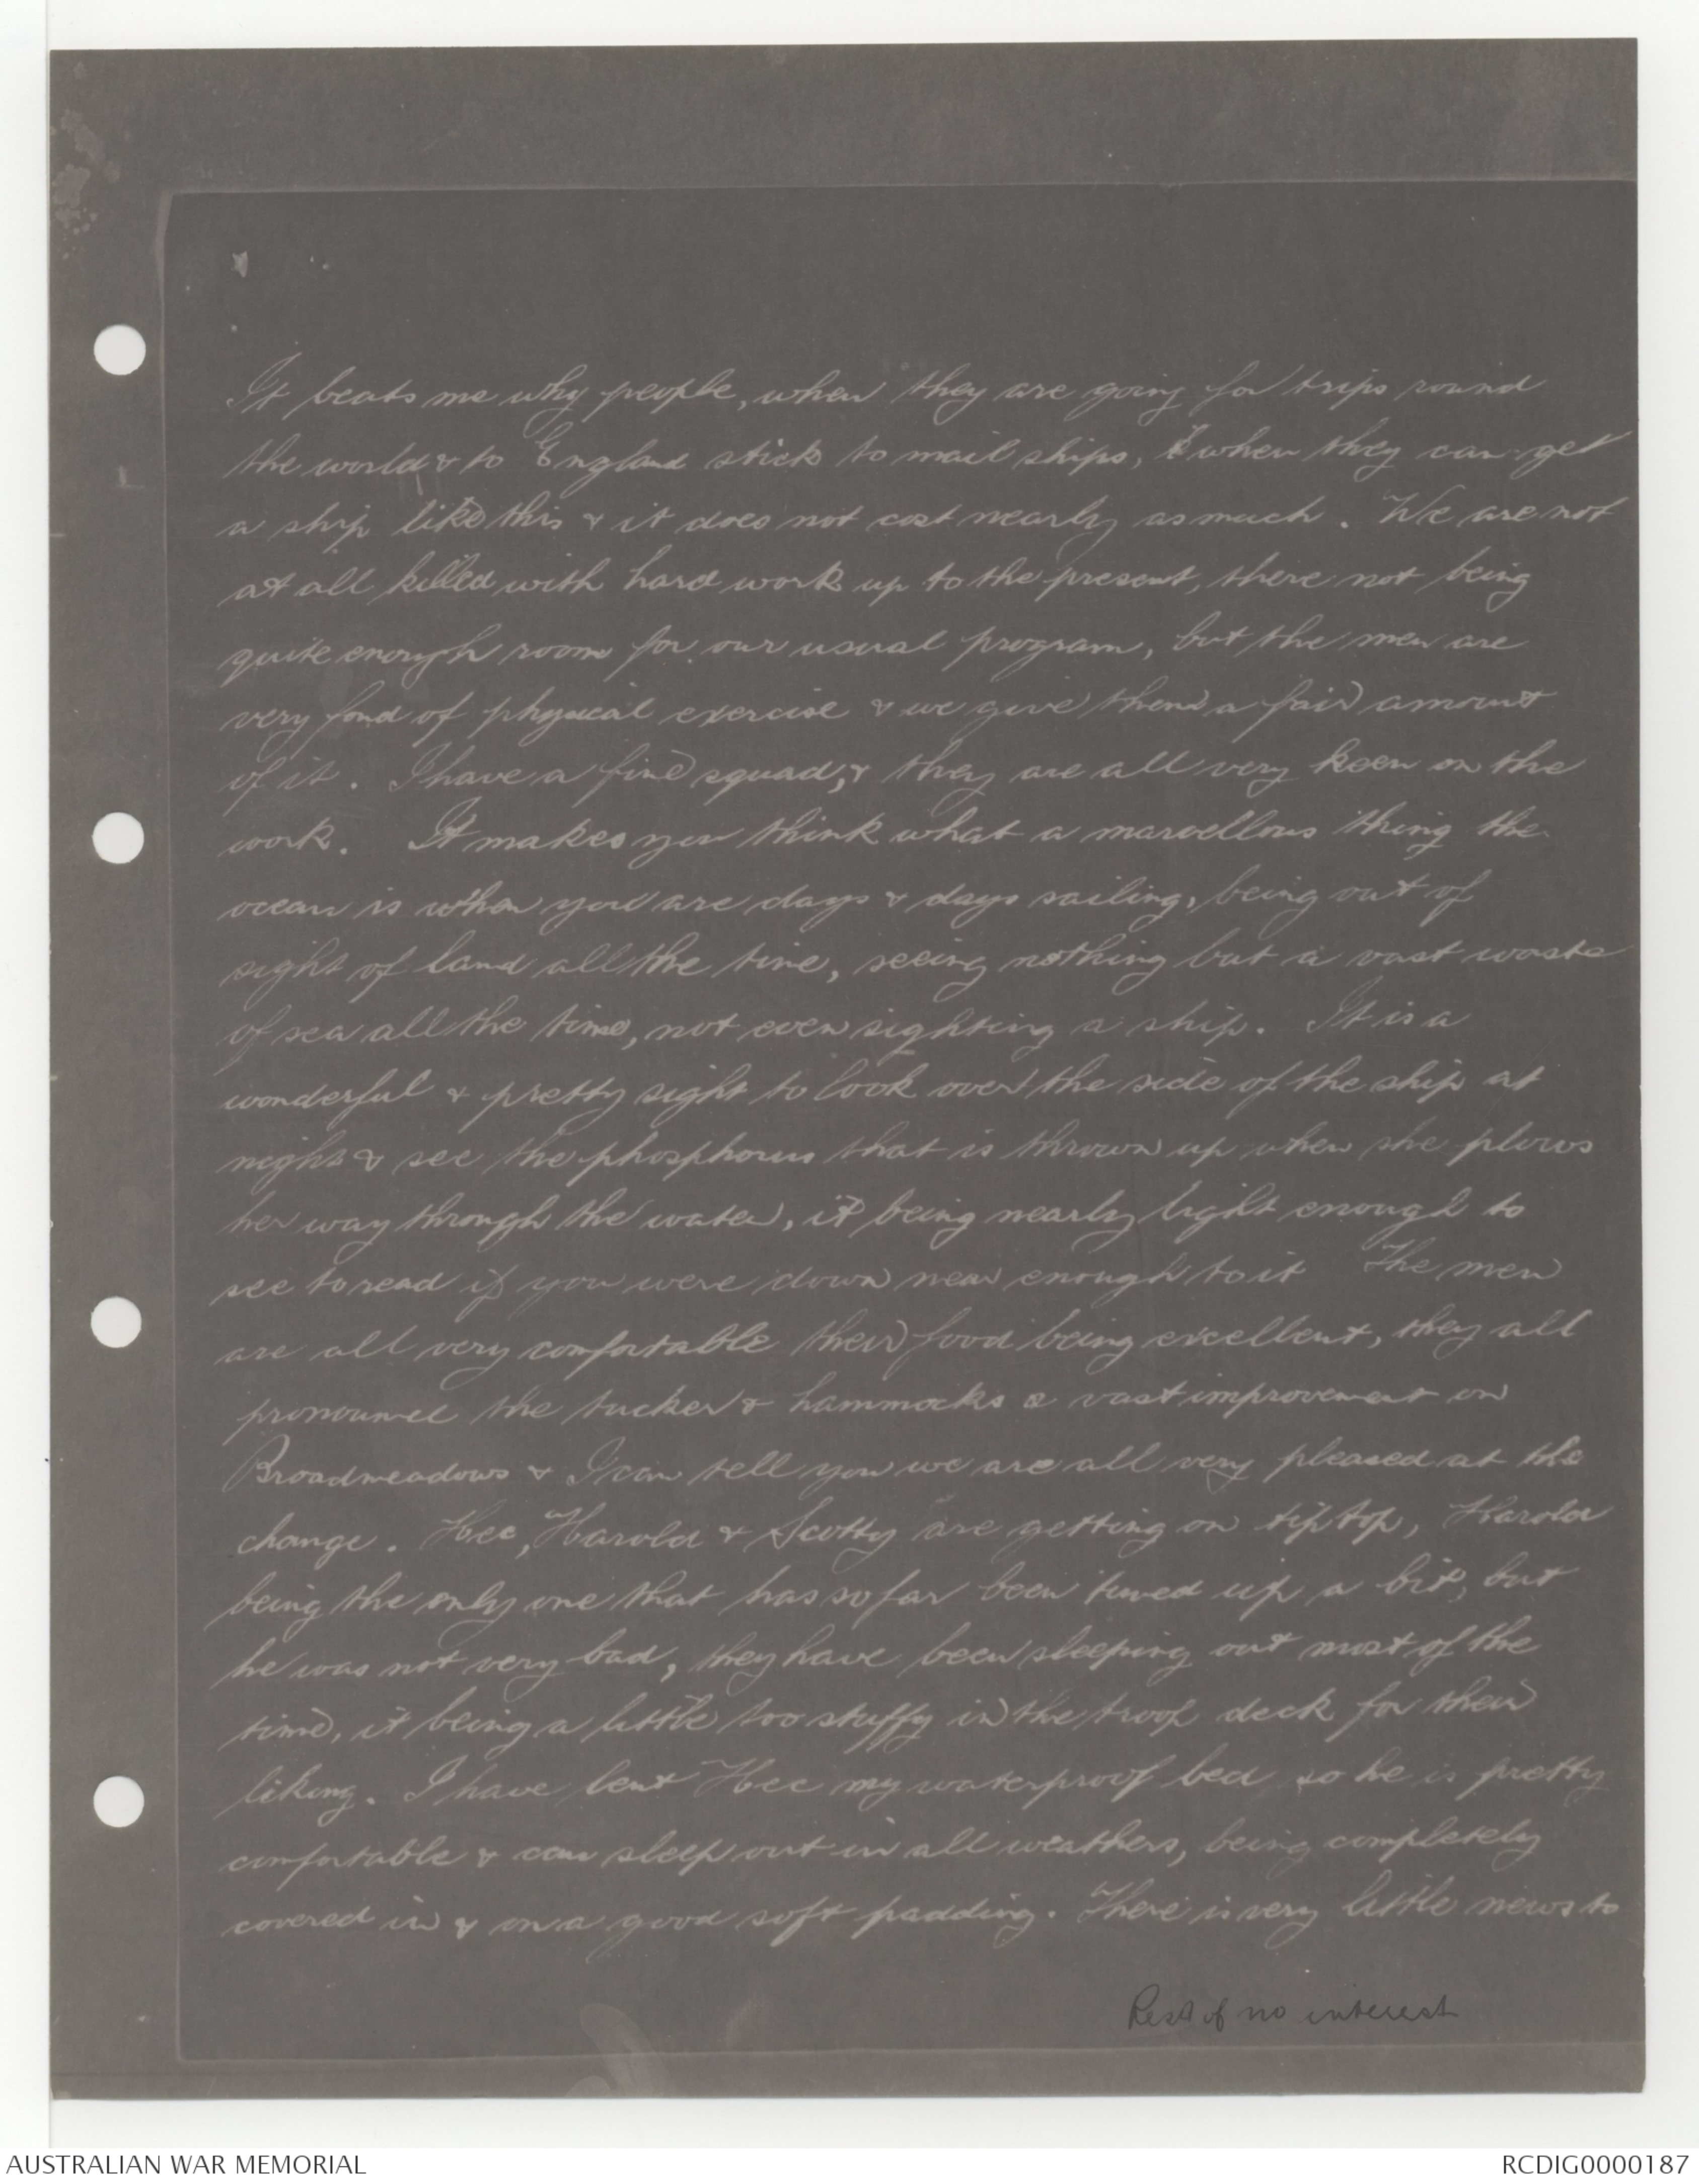 It beats me why people, when they are going for trips round
the world & to England stick to mail ships, & when they can get
a ship like this & it does not cost nearly as much. We are not
at all killed with hard work up to the present, there not being
quite enough room for our usual program, but the men are
very fond of physical exercise & we give them a fair amount
of it. I have a fine squad, & they are all very keen on the
work. It makes you think what a marvellous thing the
ocean is when you are days & days sailing, being out of
sight of land all the time, seeing nothing but a vast waste
of sea all the time, not even sighting a ship. It is a
wonderful & pretty sight to look over the side of the ship at
night & see the phosphorus that is thrown up when she plows
her way through the water, it being nearly light enough to
see to read if you were down near enough to it The men
are all very comfortable their food being excellent, they all
pronounce the tucker & hammocks a vast improvement on
Broadmeadows & I can tell you we are all very pleased at the
change. Hec, Harold & Scotty are getting on tip top, Harold
being the only one that has so far been tuned up a bit, but
he was not very bad, they have been sleeping out most of the
time, it being a little too stuffy in the troop deck for their
liking. I have lent Hec my waterproof bed so he is pretty
comfortable & can sleep out in all weathers, being completely
covered in & on a good soft padding. There is very little news to
Rest of no interest
AUSTRALIAN WAR MEMORIAL
RCDIG0000187